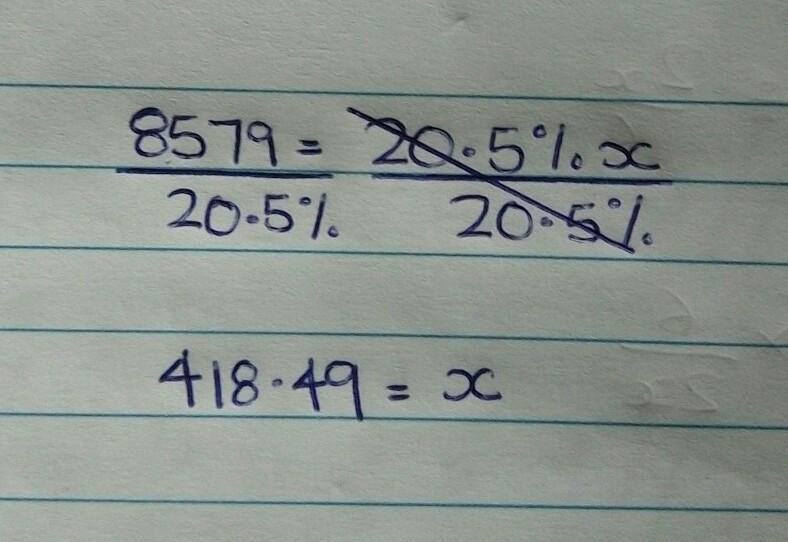 8579 = 20.5% x
20.5% 20.5%
418.49 = x